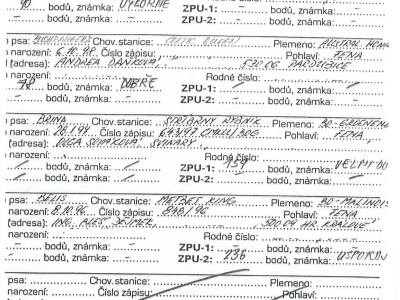 90 bodů, známka: VÝBORNĚ ZPU-1: – bodů, známka: –
– bodů, známka: – ZPU-2: – bodů, známka: –
psa: Chov.stanice: Plemeno: AUSTRAL
narození: 6.10.98 Číslo zápisu: Pohlaví: FENA
(adresa): ANDREA DAŇKOVÁ, 530 02 PARDUBICE
narození: Rodné číslo:
78 bodů, známka: DOBŘE ZPU-1: – bodů, známka: –
– bodů, známka: – ZPU-2: – bodů, známka: –
psa: BRINA Chov.stanice: STŘÍBRNÝ RYBNÍK Plemeno: BO-GROENEN
narození: Číslo zápisu: Pohlaví: FENA
(adresa): OLGA SVINARY
narození: Rodné číslo:
– bodů, známka: – ZPU-1: 134 bodů, známka: VELMI DO
– bodů, známka: – ZPU-2: – bodů, známka: –
psa: BELIS Chov.stanice: METBET KING Plemeno: BO-MALINOIS
narození: 8.10.96 Číslo zápisu: 898/96 Pohlaví: FENA
(adresa): ING. ALEŠ 500 09 HR. KRÁLOVÉ
narození: Rodné číslo:
– bodů, známka: – ZPU-1: – bodů, známka: –
– bodů, známka: – ZPU-2: 236 bodů, známka: USPOKOJ
psa: Chov.stanice: Plemeno:
narození: Číslo zápisu: Pohlaví: